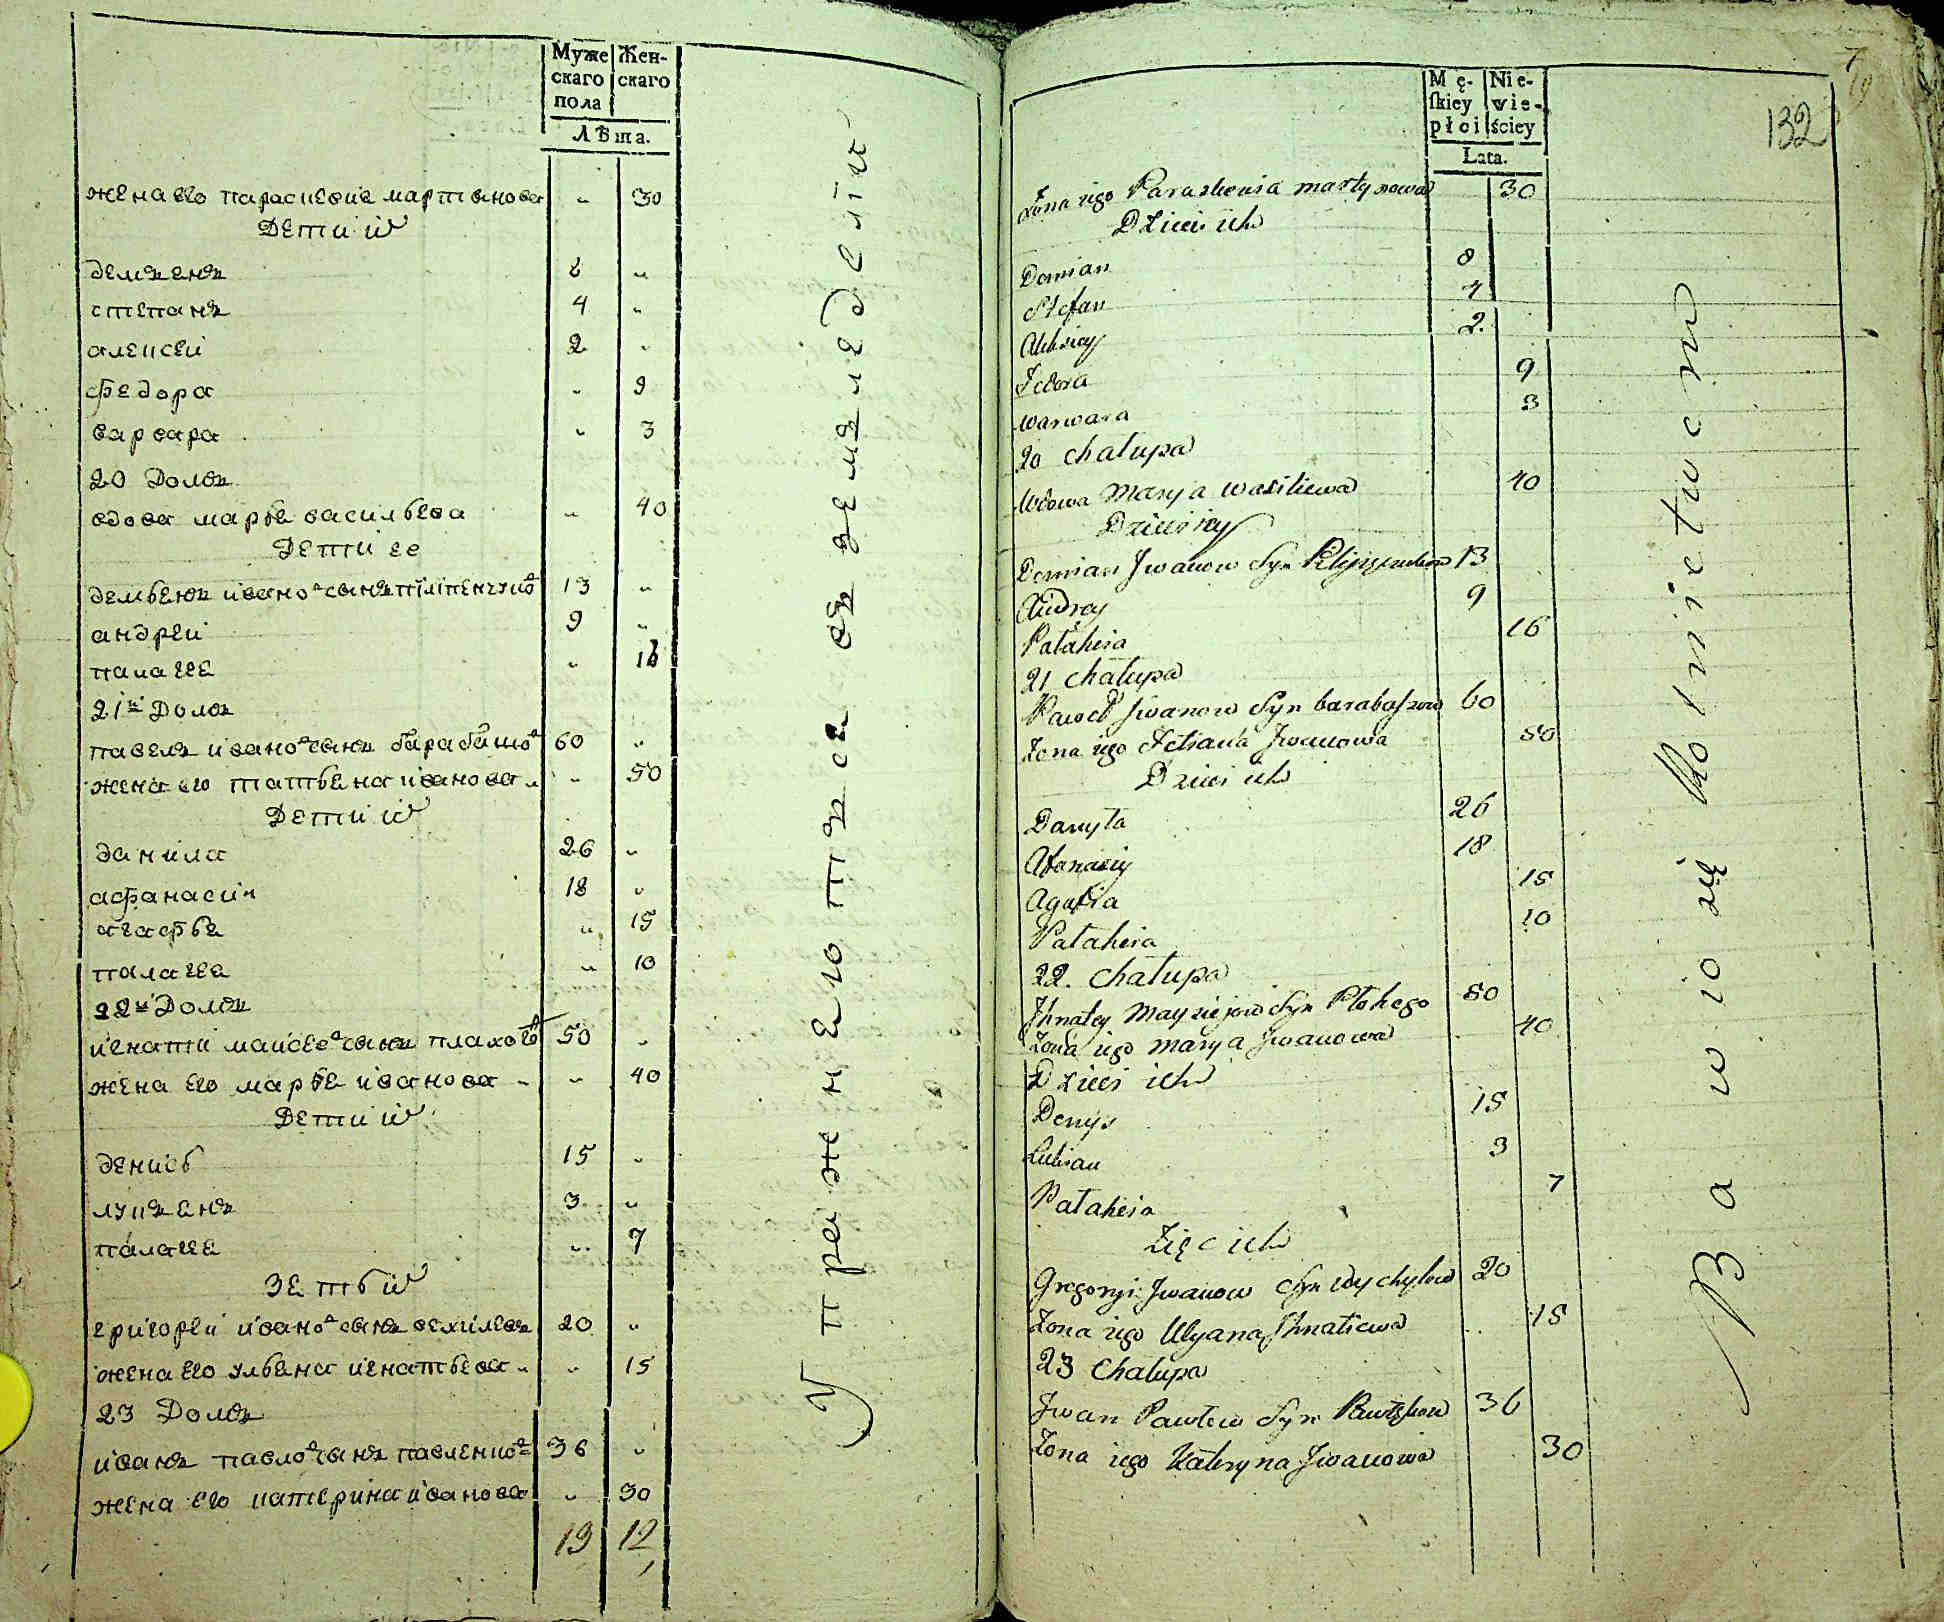 Муже
скаго
пола
Жен-
скаго
Лѣта.
жена его параскевие мартынова " 30
Дети их
демъенъ 8 "
степанъ 4 "
алексей 2 "
федора " 9
варвара " 3
20 Домъ
вдова марье васильева " 40
Дети ее
демьенъ ивановъ сынъ пилипенковъ 13 "
андрей 9 "
палагее " 16
21й Домъ
павелъ ивановъ сынъ барабашовъ 60 "
жена его татьена иванова " 50
Дети их
данила 26 "
афанасий 18 "
агафье " 15
палагее " 10
22й Домъ
игнати майсеевъ сынъ плахов 50 "
жена его марье иванова " 40
Дети их
денись 15 "
лукъенъ 3 "
палагее " 7
Зеть их
григорей ивановъ сынъ 20 "
жена его ульена игнатьева " 15
23 Домъ
иванъ павловъ сынъ павленковъ 36 "
жена его катерина иванова " 30
19 12
Упражнеютъся въ земледелии
Mę-
ſkiey
płci
Nie-
wie-
ściey
Lata.
7
132
Żona iego Paraskewia martynowa 30
Dzieci ich
Demian 8
Stefan 4
Alexiey 2.
Fedora 9
Warwara 3
20 chałupa
Wdowa Marya Wasiliewa 40
Dzieci iey
Demian Jwanow Syn 13
Andrey 9
Pałaheia 16
21 chałupa
Paweł Jwanow Syn barabaszow 60
Żona iego Tetiana Jwanowa 50
Dzieci ich
Danyła 26
Afanasiy 18
Agafia 15
Pałaheia 10
22. chałupa
Jhnatey Mayzieiow Syn Płohego 50
Żona iego Marya Jwanowa 40
Dzieci ich
Denys 15
Lukian 3
Pałaheia 7
Zięc ich
Gregoryi Jwanow Syn Wychylow 20
Żona iego Ulyana Jhnatiewa 15
23 Chałupa
Jwan Pawłow Syn 36
Żona iego Kateryna Jwanowa 30
Bawio się Rolnictwem